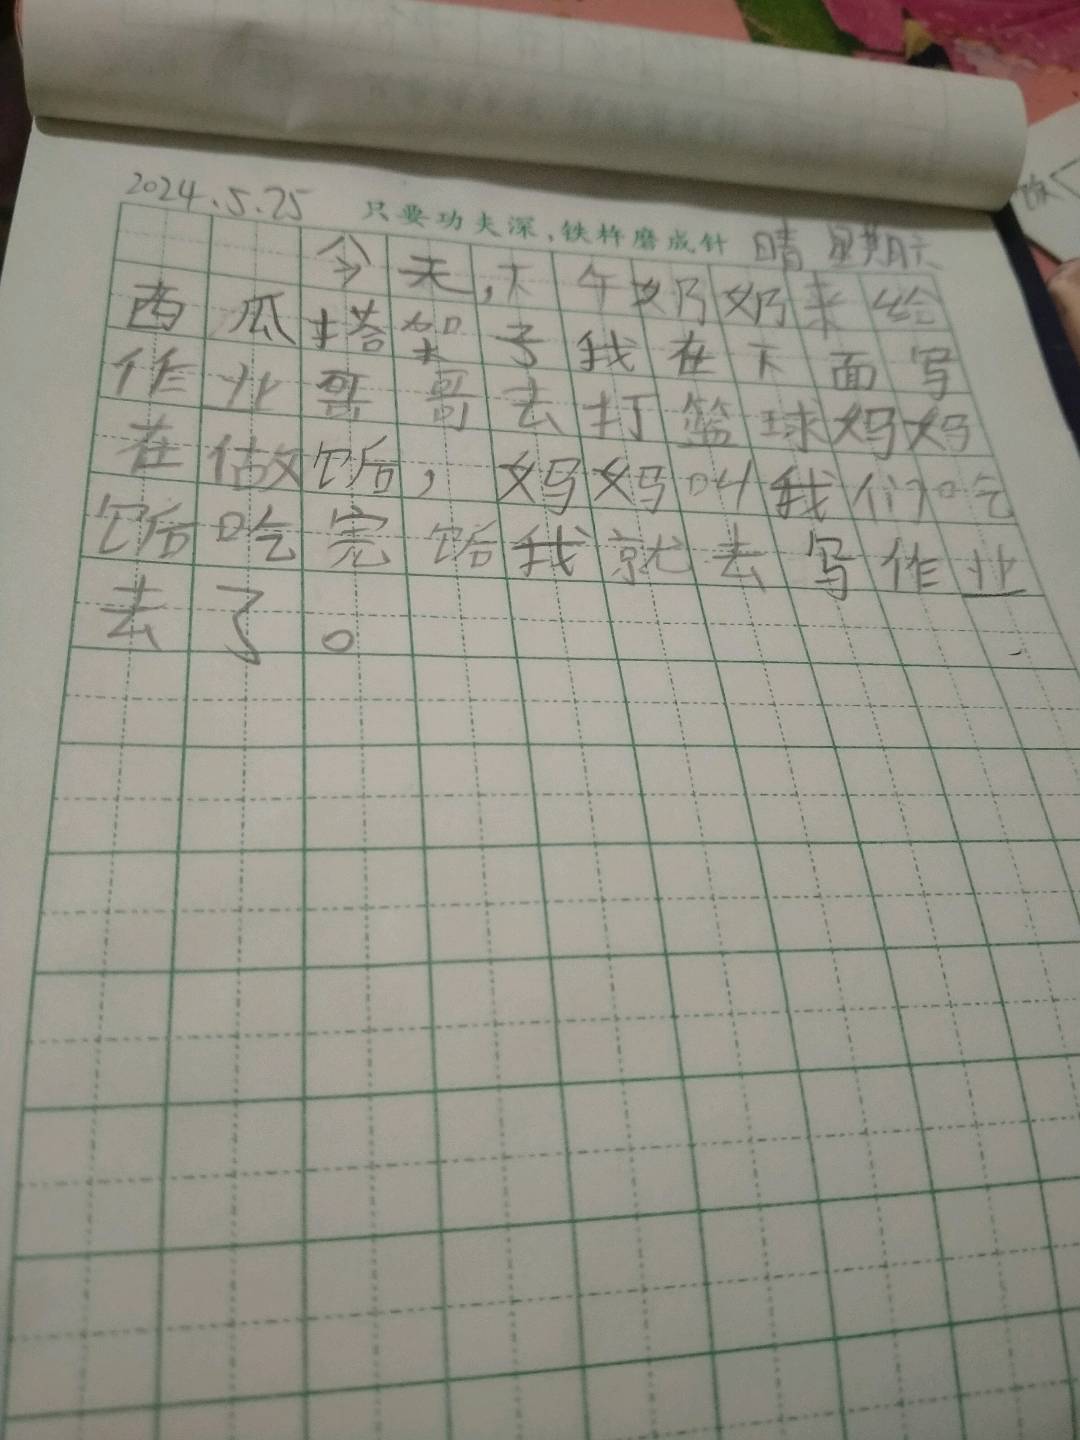 2024.5.25
只要功夫深,铁杵磨成针 晴 星期天
今天,下午奶奶来给
西瓜搭架子我在下面写
作业哥哥去打篮球妈妈
在做饭,妈妈叫我们吃
饭吃完饭我就去写作业
去了。